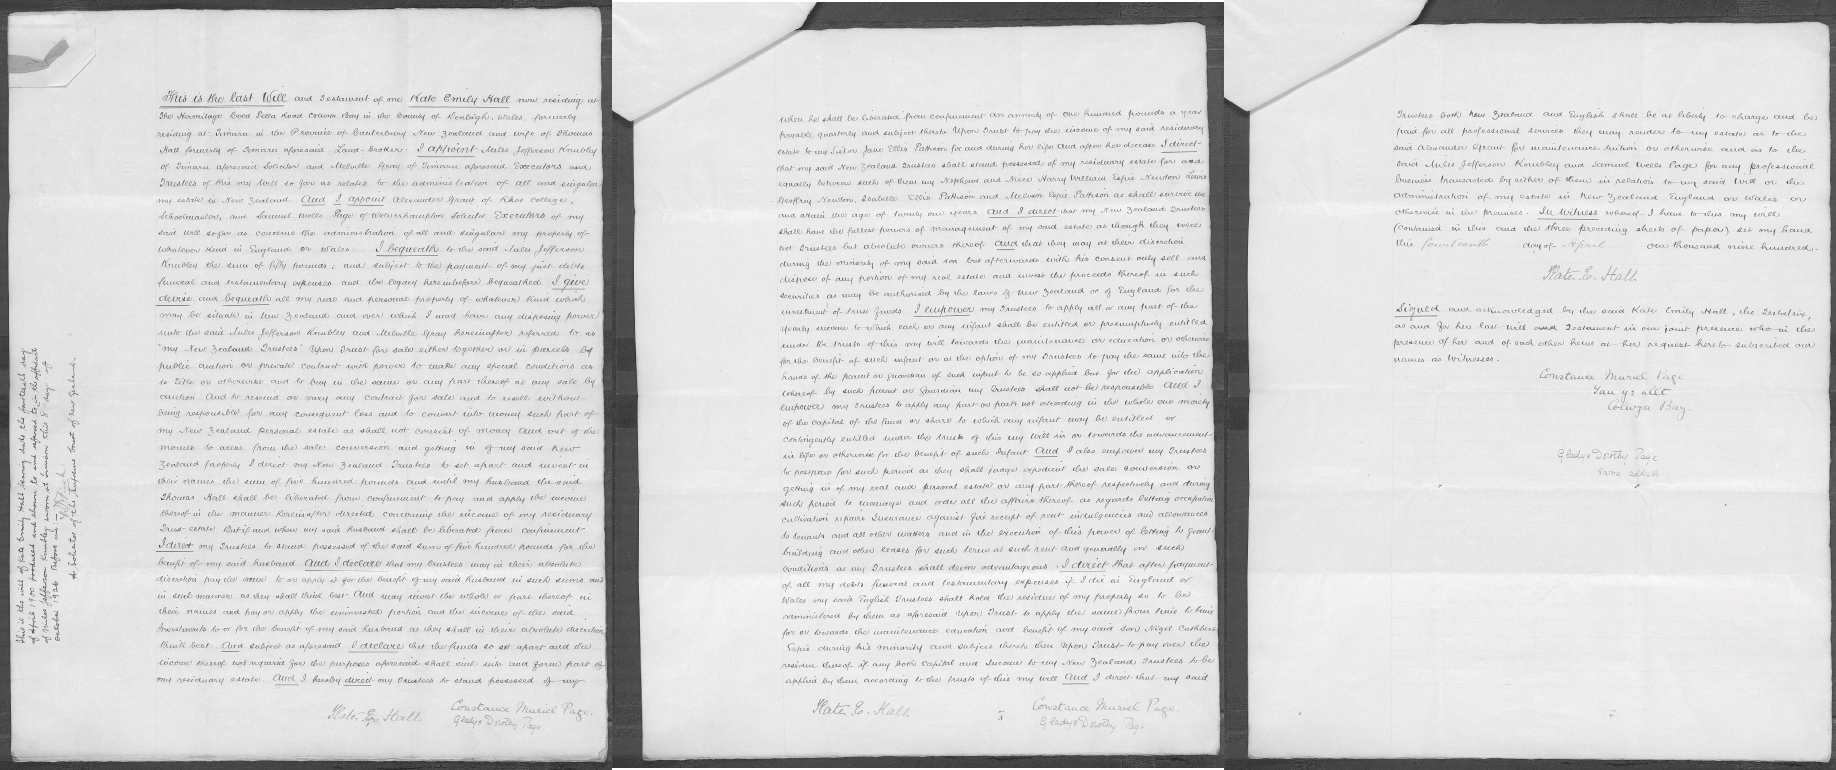 This is the last Will and Testament of me Kate Emily Hall now residing at
The Hermitage Coed Pella Road Colwyn Bay in the County of Denbigh, Wales, formerly
residing at Timaru in the Province of Canterbury New Zealand and wife of Thomas
Hall formerly of Timaru aforesaid Land-broker. I appoint Miles Jefferson Knubley
of Timaru aforesaid Solicitor and Melville Gray of Timaru aforesaid Executors and
Trustees of this my Will so far as relates to the administration of all and singular
my estate in New Zealand And I appoint Alexander Grant of Rhos College,
Schoolmaster, and Samuel Wells Page of Wolverhampton Solicitor Executors of my
said will so far as concerns the administration of all and singular my property of
whatever kind in England or Wales. I bequeath to the said Miles Jefferson
Knubley the sum of fifty pounds; and subject to the payment of my just debts
funeral and testamentary expenses and the legacy hereinbefore bequeathed I give
devise and bequeath all my real and personal property of whatever kind which
may be situate in New Zealand and over which I may have any disposing power
unto the said Miles Jefferson Knubley and Melville Gray hereinafter referred to as
"my New Zealand Trustees" Upon Trust for sale either together or in parcels by
public auction or private contract with power to make any special conditions as
to Title or otherwise and to buy in the same or any part thereof at any sale by
auction And to rescind or vary any contract for sale and to resell without
being responsible for any consequent loss and to convert into money such part of
my New Zealand personal estate as shall not consist of money And out of the
monies to arise from the sale conversion and getting in of my said New
Zealand property I direct my New Zealand Trustees to set apart and invest in
their names the sum of five hundred pounds and until my husband the said
Thomas Hall shall be liberated from confinement to pay and apply the income
thereof in the manner hereinafter directed concerning the income of my residuary
Trust estate But if and when my said husband shall be liberated from confinement
I direct my Trustees to stand possessed of the said sum of five hundred pounds for the
benefit of my said husband And I declare that my trustees may in their absolute
discretion pay the same to or apply it for the benefit of my said husband in such sums and
in such manner as they shall think best And may invest the whole or part thereof in
their names and pay or apply the uninvested portion and the income of the said
Investments to or for the benefit of my said husband as they shall in their absolute discretion
think best And subject as aforesaid I declare that the funds so set apart and the
income thereof not required for the purposes aforesaid shall sink into and form part of
my residuary estate. And I hereby direct my trustees to stand possessed of my
Kate E. Hall
Constance Muriel Page.
Gladys Dorothy Page
This is the will of Kate Emily Hall bearing date the fourteenth day
of April 1900 produced and shown to and referred to in the affidavit
of Miles Jefferson Knubley sworn at Timaru this 8th day of
October 1926 Before me
A Solicitor of the Supreme Court of New Zealand.
when he shall be liberated from confinement an annuity of one hundred pounds a year
payable quarterly and subject thereto Upon Trust to pay the income of my said residuary
estate to my Sister Jane Ellis Pattison for and during her life And after her decease I direct
that my said New Zealand Trustees shall stand possessed of my residuary estate for and
equally between such of them my Nephews and Niece Harry William Espie Newton Lewis
Geoffrey Newton, Isabelle Ellis Pattison and Melvin Espie Pattison as shall survive me
and attain the age of twenty one years And I direct that my New Zealand Trustees
shall have the fullest powers of management of my said estate as though they were
not Trustees but absolute owners thereof And that they may at their discretion
during the minority of my said son but afterwards with his consent only sell and
dispose of any portion of my real estate and invest the proceeds thereof in such
securities as may be authorised by the laws of New Zealand or of England for the
investment of trust funds. I empower my Trustees to apply all or any part of the
yearly income to which each or any infant shall be entitled or presumptively entitled
under the trusts of this my will towards the maintenance or education or otherwise
for the benefit of such infant or at the option of my Trustees to pay the same into the
hands of the parent or Guardian of such infant to be so applied but for the application
thereof by such parent or Guardian my Trustees shall not be responsible And I
empower my Trustees to apply any part or parts not exceeding in the whole one moiety
of the capital of the fund or share to which any infant may be entitled or
contingently entitled under the trusts of this my Will in or towards the advancement
in life or otherwise for the benefit of such Infant And I also empower my Trustees
to postpone for such period as they shall judge expedient the sale conversion or
getting in of my real and personal estate or any part thereof respectively and during
such period to manage and order all the affairs thereof as regards letting occupation
cultivation repairs Insurance against fire receipt of rent indulgencies and allowances
to tenants and all other matters and in the execution of this power of letting to grant
building and other leases for such term at such rent and generally on such
conditions as my Trustees shall deem advantageous. I direct that after payment
of all my debts funeral and testamentary expenses if I die in England or
Wales my said English Trustees shall hold the residue of my property so to be
administered by them as aforesaid Upon Trust to apply the same from time to time
for or towards the maintenance education and benefit of my said son Nigel Cuthbert
Espie during his minority and subject thereto then Upon Trust to pay over the
residue thereof if any both Capital and Income to my New Zealand Trustees to be
applied by them according to the trusts of this my will And I direct that my said
Kate E. Hall
Constance Muriel Page.
Gladys Dorothy Page
Trustees both New Zealand and English shall be at liberty to charge and be
paid for all professional services they may render to my estate as to the
said Alexander Grant for maintenance tuition or otherwise and as to the
said Miles Jefferson Knubley and Samuel Wells Page for any professional
business transacted by either of them in relation to my said Will or the
administration of my estate in New Zealand England or Wales or
otherwise in the premises. In Witness whereof I have to this my will
(contained in this and the three preceding sheets of paper) set my hand
this fourteenth day of April one thousand nine hundred.
Kate E. Hall
Signed and acknowledged by the said Kate Emily Hall, the Testatrix,
as and for her last Will and Testament in our joint presence who in the
presence of her and of each other have at her request hereto subscribed our
names as Witnesses.
Constance Muriel Page
Tan yr allt
Colwyn Bay.
Gladys Dorothy Page
same address